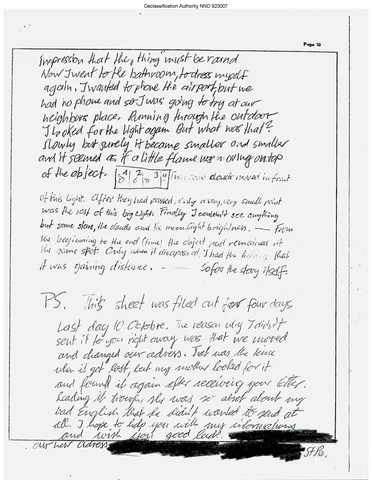 Declassification Authority NND 923007
Page 10
impression that the "thing" must be round
Now I went to the bathroom, to dress myself
again. I wanted to phone the airport, but we
had no phone and so I was going to try at our
neighbors place. Running through the outdoor
I looked for the light again But what was that?
Slowly but surely it became smaller and smaller
and it seemed as if a little flame was moving on top
of the object. 1 2 3 4 Then some clouds moved in front
of this light. After they had passed, only a very, very small point
was the rest of this big light. Finally I couldn't see anything
but some stars, the clouds and the moon light brightness. — From
the beginning to the end (time) the object had remained at
the same spot. Only when it disappeared, I had the feeling that
it was gaining distance. — So far the story itself.
PS. This sheet was filed out four days
Last day 10 Octobre. The reason why I didn't
sent it to you right away was that we moved
and changed our address. That was the
when it got lost, but my mother looked for it
and found it again after receiving your letter.
Reading it through, she was so about my
bad English that he didn't wanted to send at
all. I hope to help you with my informations
and wish you good luck.
our new address